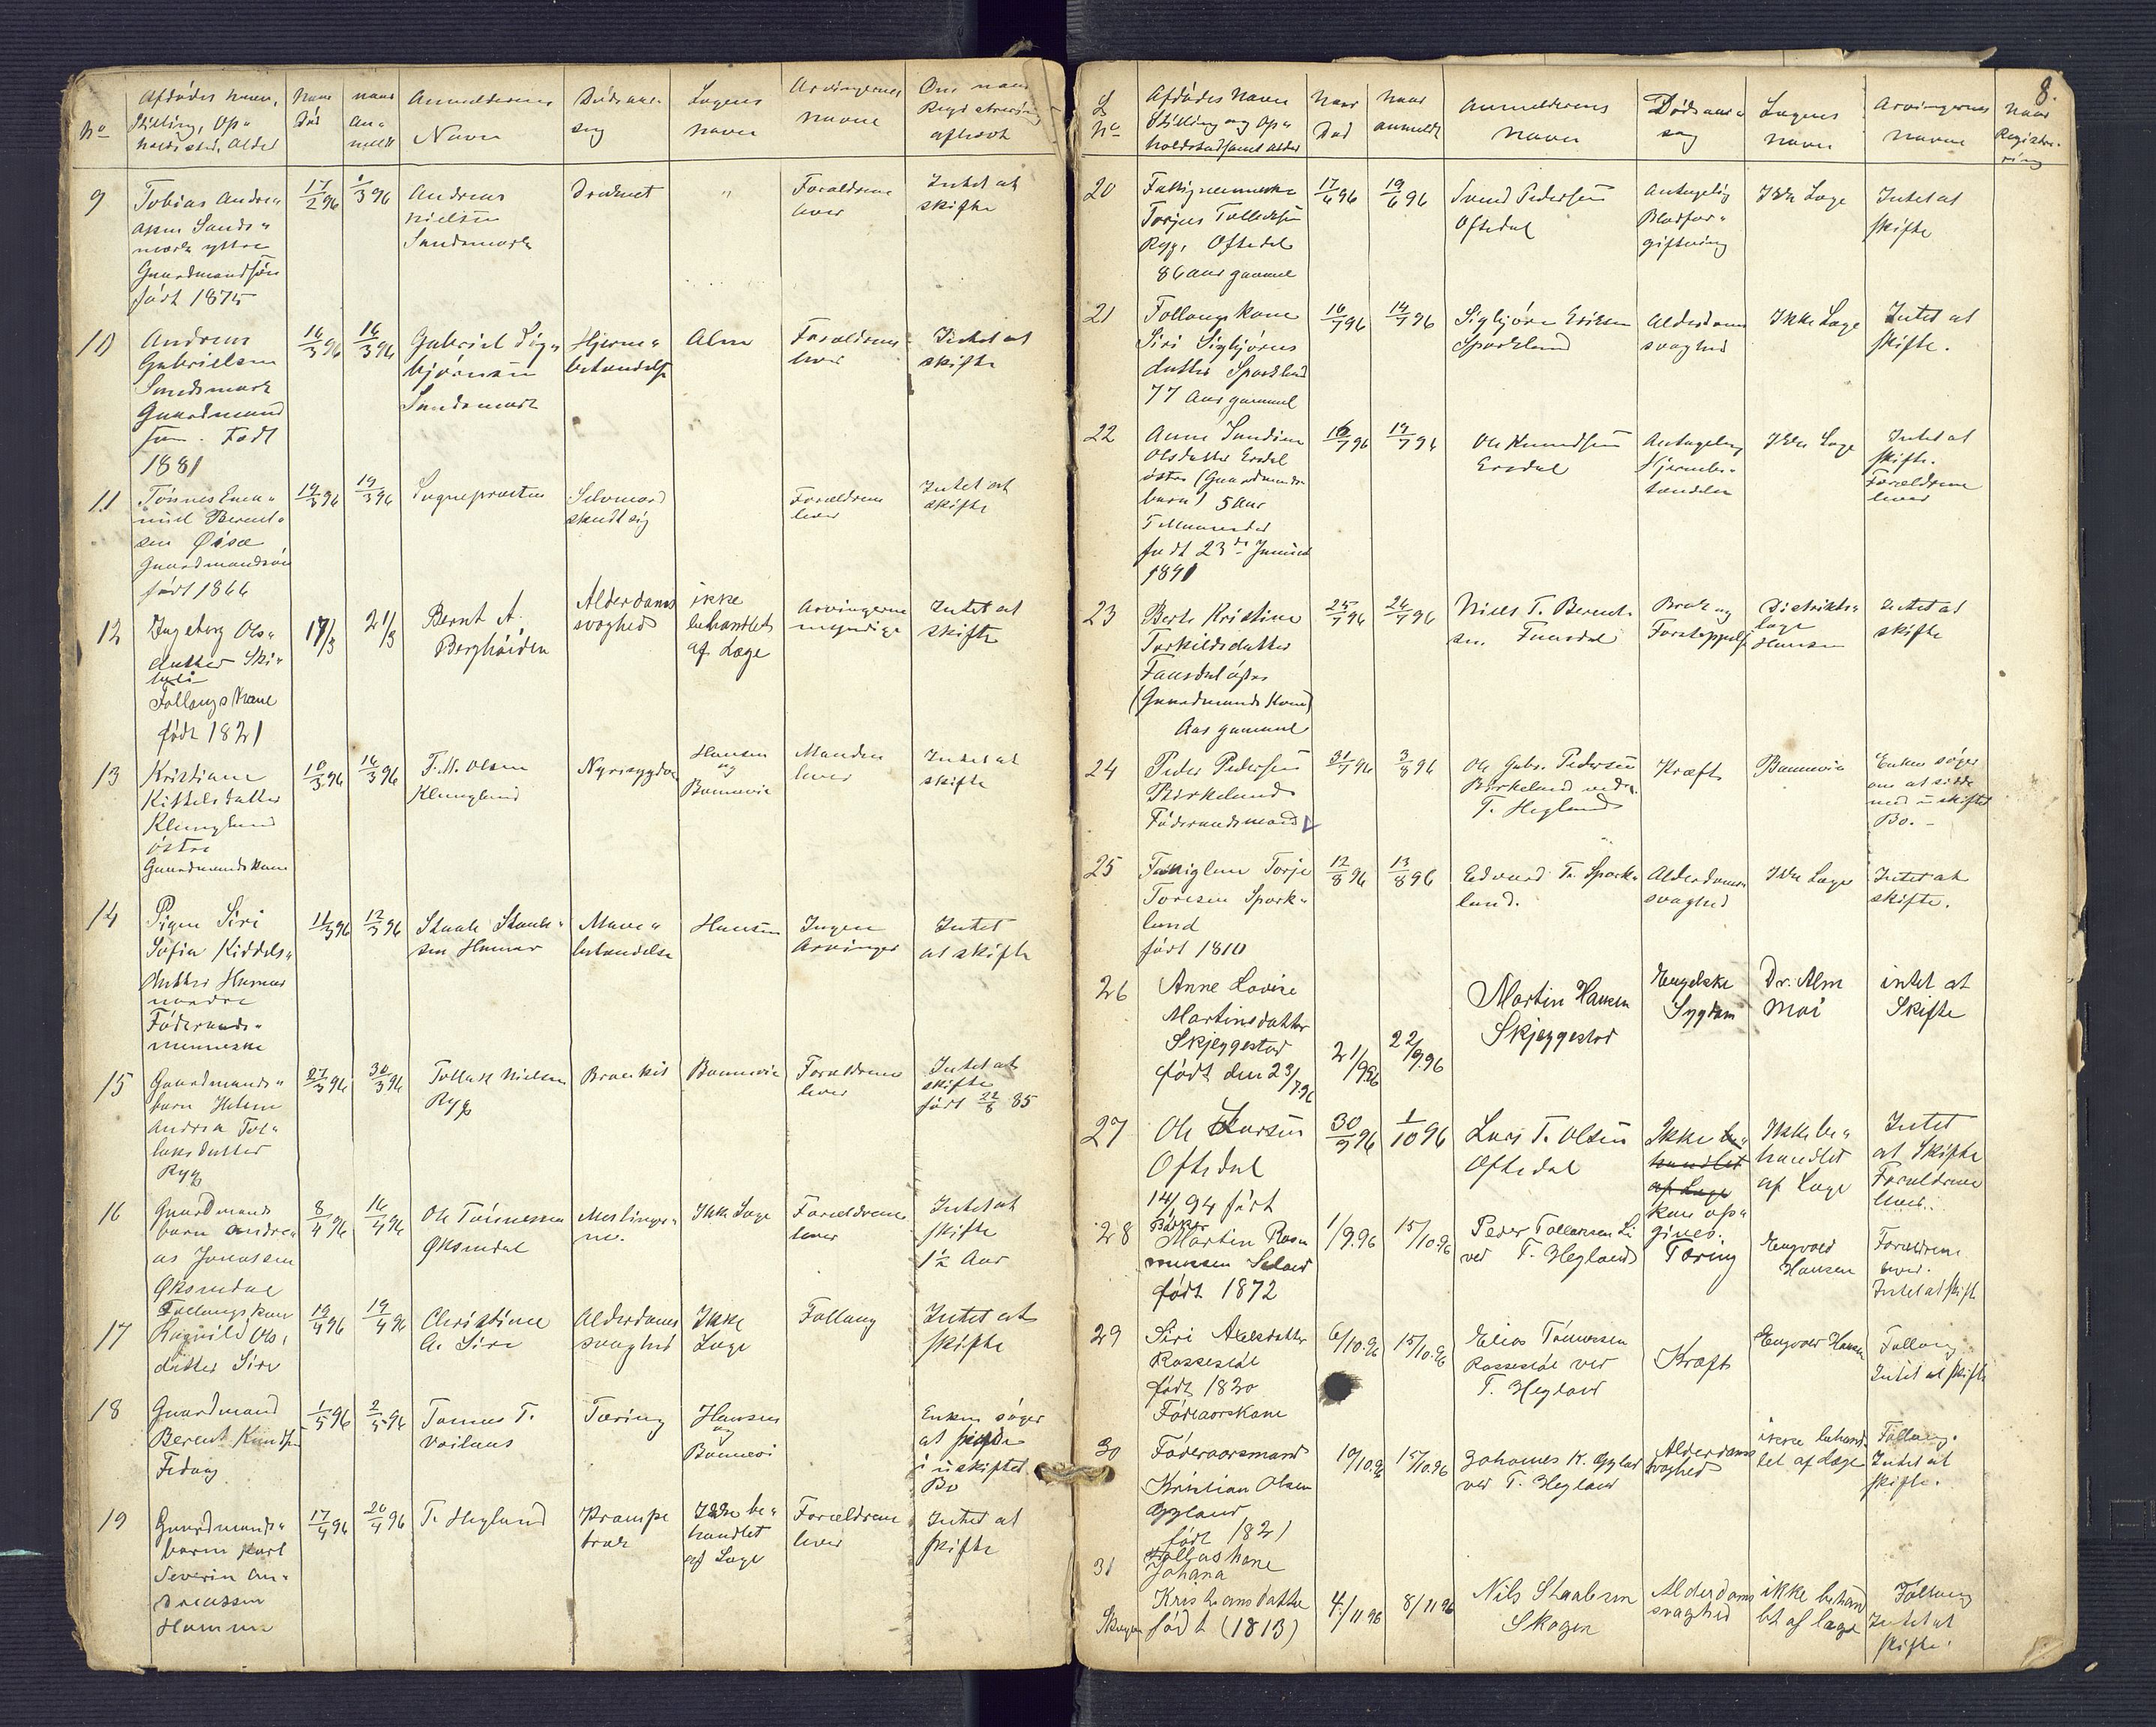 No
Afdødes navn,
Stilling, Op-
holdssted, Alder
Naar
Død
naar
an-
meldt
Anmelderens
Navn
Dødsaar-
sag
Lægens
navn
Arvingernes
navne
Om naar
Registrering
afholdt
9
Tobias Andre-
assen Sands-
mork yttre
Gaardmandssøn
født 1875
17/2 96
1/3 96
Andreas
Nielsen
Sandsmork
Druknet
"
Forældrene
lever
Intet at
skifte
10
Andreas
Gabrielsen
Sandsmork
Gaardmand
søn. Født
1881
16/3 96
16/3 96
Gabriel Sig-
bjørnsen
Sandsmork
Hjerne-
betændelse
Alm
Forældrene
lever
Intet at
skifte
11
Tønnes Ema-
nuel Berent-
sen Øisæ
Gaardmandssøn
født 1866
19/3 96
19/3 96
Sognepræsten
Selvmord
skudt sig
Forældrene
lever
Intet at
skifte
12
Ingeborg Ols-
datter Ski-
beli
Follaugskone
født 1821
17/3
21/3
Bernt A.
Berghöiden
Alderdoms
svaghed
ikke
behandlet
af Læge
Arvingerne
myndige
Intet at
skifte
13
Kristiane
Kittelsdatter
Klungland
østre
Gaardmandskone
10/3 96
16/3 96
T. N. Olsen
Klungland
Nyresygdom
Hansen
og
Bonnevie
Manden
lever
Intet at
skifte
14
Pigen Siri
Sofia Kiddels-
datter Hamar
nordre
Föderaads-
menneske
11/3 96
12/3 96
Staale Staale-
sen Hamar
Mave-
betændelse
Hansen
Ingen
Arvinger
Intet
at skifte
15
Gaardmands-
barn Helene
Andrea Tol-
laksdatter
Rygg
27/3 96
30/3 96
Tollak Nielsen
Rygg
Bronkit
Bonnevie
Forældrene
lever
Intet at
skifte
født 22/8 85
16
Gaardmands
barn Andre-
as Jonassen
Øksendal
8/4 96
16/4 96
Ole Tønnessen
Øksendal
Meslinger-
ne.
Ikke Læge
Forældrene
lever
Intet at
skifte
1½ Aar
17
Follaugskone
Ragnild Ols-
datter Sire
19/4 96
19/4 96
Christine
A. Sire
Alderdoms
svaghed
Ikke
Læge
Follaug
Intet at
skifte
18
Gaardmand
Berent Knudsen
Fedog
1/5 96
2/5 96
Tomas T.
Tæring
Hansen
og
Bonnevi
Enken søger
at sidde
i uskiftet
Bo
19
Gaardmands-
barn Karl
Severin An-
dreassen
Hamre
17/4 96
20/4 96
T. Hegland
Krampe
trok
Ikke be-
handlet
af Læge
Forældrene
lever
Intet at
skifte
8.
L
No
Afdødes Navn
Stilling og Op-
holdssted samt Alder
Naar
Død
Naar
anmeldt
Anmelderens
navn
Dødsaar-
sag
Lægens
navn
Arvingernes
navne
Naar
Registre-
ring
20
Fattigmenneske
Torjus Tolleksen
Rygg, Oftedal
86 aar gammel
17/6 96
19/6 96
Svend Pedersen
Oftedal
Antagelig
Blodfor-
giftning
Ikke Læge
Intet at
skifte
21
Follaugskone
Siri Sigbjørns
datter Sporkland
77 Aar gammel
16/7 96
14/7 96
Sigbjørn Eriksen
Sporkland
Alderdoms
svaghed
Ikke Læge
Intet at
skifte.
22
Anne Sandine
Olsdatter Eredal
østre (Gaardmands
barn) 5 Aar
født 23de Januar
1891
16/7 96
19/7 96
Ole Knudsen
Eredal
Antagelig
Hjernebe-
tændelse
Ikke Læge
Intet at
skifte.
Forældrene
lever
23
Berte Kristine
Torkildsdatter
Fausdal østre
(Gaardmands Kone)
Aar gammel
25/7 96
26/7 96
Niels T. Berent-
sen. Fausdal
Brok og
Forstoppelse
Distrikts-
læge
Hansen
Intet at
skifte
24
Peder Pedersen
Birkeland
Föderaadsmand ✓
31/7 96
3/8 96
Ole Gabr. Pedersen
Birkeland ved
T. Hegland
Kræft
Bonnevie
Enken søger
om at sidde
med uskiftet
Bo.
25
Torje
Toresen Spork-
land
født 1810
12/8 96
13/8 96
Edvard Tr. Spork-
land.
Alderdoms-
svaghed
Ikke Læge
Intet at
skifte.
26
Anne Lovise
Martinsdatter
Skjeggestad
født den 23/7 96
21/9 96
22/9.96
Martin Hansen
Skjeggestad
Engelske
Sygdom
Dr. Alm
Moi
intet at
Skifte
27
Ole Larsen
Oftedal
14/1 94 født
30/9 96
1/10 96
Lars T. Olsen
Oftedal
Ikke be-
handlet
af Læge
kan op-
gives.
Ikke be-
handlet
af Læge
Intet
at Skifte
Forældrene
lever.
28
Bager
Martin Rasm
mussen Seland
født 1872
1/9.96
15/10.96
Peder Tollaksen Li
ved T. Hegland
Tæring
Engvald
Hansen
Forældrene
lever.
Intet at skifte
29
Siri Axelsdatter
Rossestöl
født 1820
Föderaadskone
6/10.96
15/10.96
Elias Tönnessen
Rossestöl ved
T. Hegland
Kræft
Engvald Hansen
Follaug
Intet at skifte
30
Föderaadsmand
Kristian Olsen
Gyland
født 1821
10/10.96
15/10.96
Johannes K. Gyland
ved T. Hegland
Alderdoms
svaghed
ikke behand-
let af Læge
Follaug.
Intet at
skifte.
31
Johana
Kristiansdatter
Skogen født (1813)
4/11 96
8/11 96
Nils Staalesen
Skogen
Alderdoms
svaghed
ikke behand
let af læge
Follaug
Intet at
skifte.